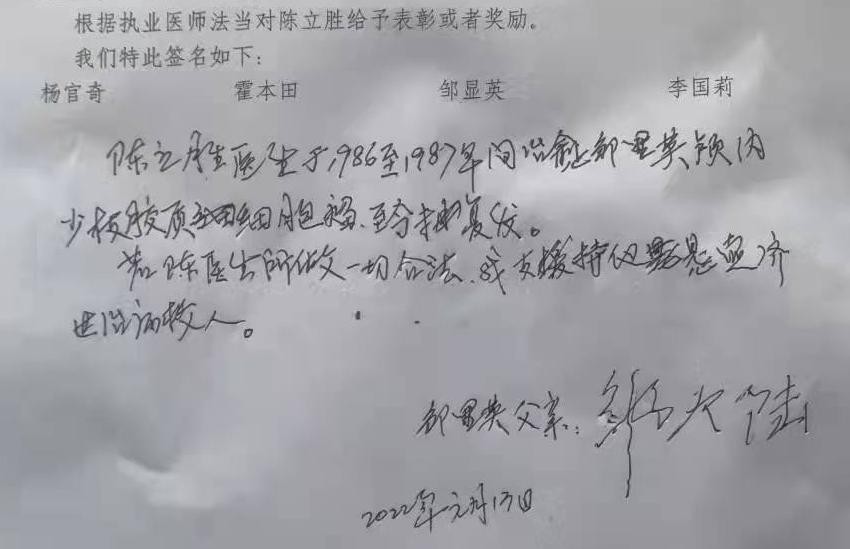 根据执业医师法当对陈立胜给予表彰或者奖励。
我们特此签名如下：
杨官奇 霍本田 邹显英 李国莉
陈立胜医生于1986至1987年间治愈邹显英颅内
少枝胶质细胞瘤、至今未复发。
若陈医生所做又一切合法、我支援持仪悬壶济
世治病救人。
邹显英父亲：邹次陆
2022年元月13日